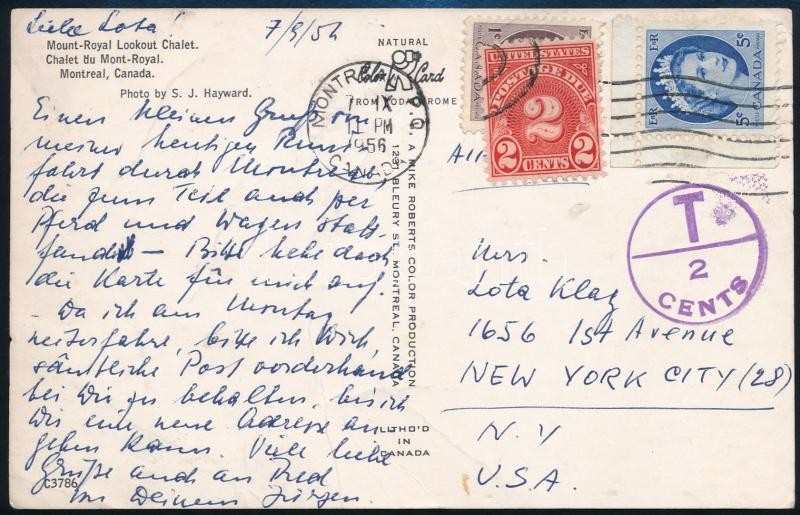 Liebe Lota!
7/9/56
Mount-Royal Lookout Chalet.
Chalet du Mont-Royal.
Montreal, Canada.
Photo by S. J. Hayward.
Einen kleinen Gruß von
meiner heutigen Rund-
fahrt durch Montreal,
die zum Teil auch per
Pferd und Wagen statt-
fand — Bitte hebe doch
die Karte für mich auf.
- Da ich am Montag
weiterfahre, bitte ich Dich
sämtliche Post vorderhand
bei Dir zu behalten, bis ich
Dir eine neue Adresse an-
geben kann. Viele liebe
Grüße auch an Fred
von Deinem Jürgen.
C3786
NATURAL
Color Card
FROM KODACHROME
MONTREAL P.Q.
7 IX
11 PM
1956
CANADA
A MIKE ROBERTS COLOR PRODUCTION
1231 BLEURY ST., MONTREAL, CANADA
LITHO'D
IN
CANADA
1¢
CANADA
UNITED STATES
POSTAGE DUE
2
2 CENTS 2
E II R
5¢
CANADA
E II R
5¢
Air
T
2
CENTS
Mrs.
Lota Klaz
1656 1st Avenue
NEW YORK CITY (28)
N.Y
U.S.A.